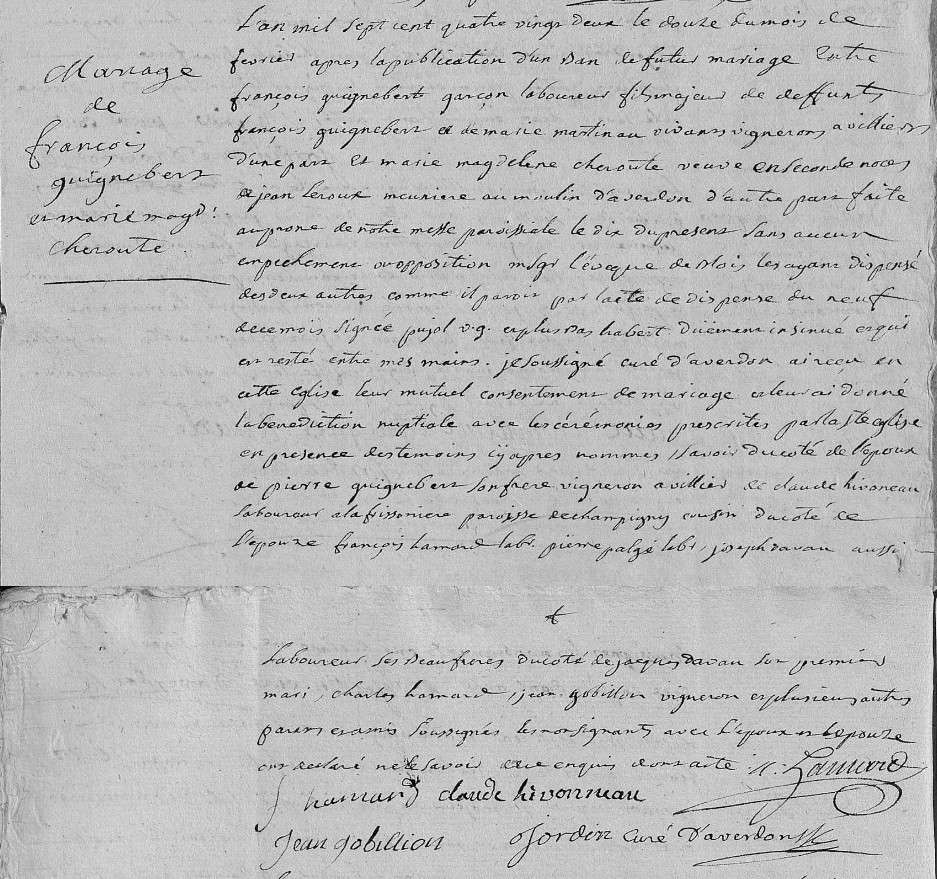 Mariage
de
françois
guignebert
et marie magd:
cheroute
L'an mil sept cent quatre vingt deux le douze du mois de
fevrier apres la publication d'un Ban de futur mariage Entre
françois guignebert garçon laboureur fils majeur de deffunts
françois guignebert et de marie martinau vivants vignerons a villiers
d'une part Et marie magdelene cheroute veuve en seconde noces
de jean Leroux meuniere au moulin d'averdon d'autre part faite
au prone de notre messe paroissiale le dix du present sans aucun
enpechement ou opposition msgr L'évêque de Blois les ayant dispensé
des deux autres comme il paroit par l'acte de dispense du neuf
de ce mois signée pujol v.g. et plus bas habert duëment insinué et qui
est resté entre mes mains. je soussigné curé d'averdon ai reçu en
cette eglise leur mutuel consentement de mariage et leur ai donné
la benediction nuptiale avec les cérémonies prescrites par la Ste eglise
en presence des temoins cy apres nommes sçavoir du coté de l'epoux
de pierre guignebert son frere vigneron a villier de claude hivonneau
laboureur a la frissoniere paroisse de champigny cousin du coté de
L'epouze françois hamard labr. pierre palgé labr, joseph davau aussi
laboureur ses Beaufreres du coté de jacques davau son premier
mari, charles hamard, jean gobillon vigneron et plusieurs autres
parens et amis soussignés les non signants avec L'epoux et L'epouze
ont déclaré ne le savoir de ce enquis dont acte. f. hamard
f hamard claude hivonneau
Jean gobillion Jordin Curé D'averdon